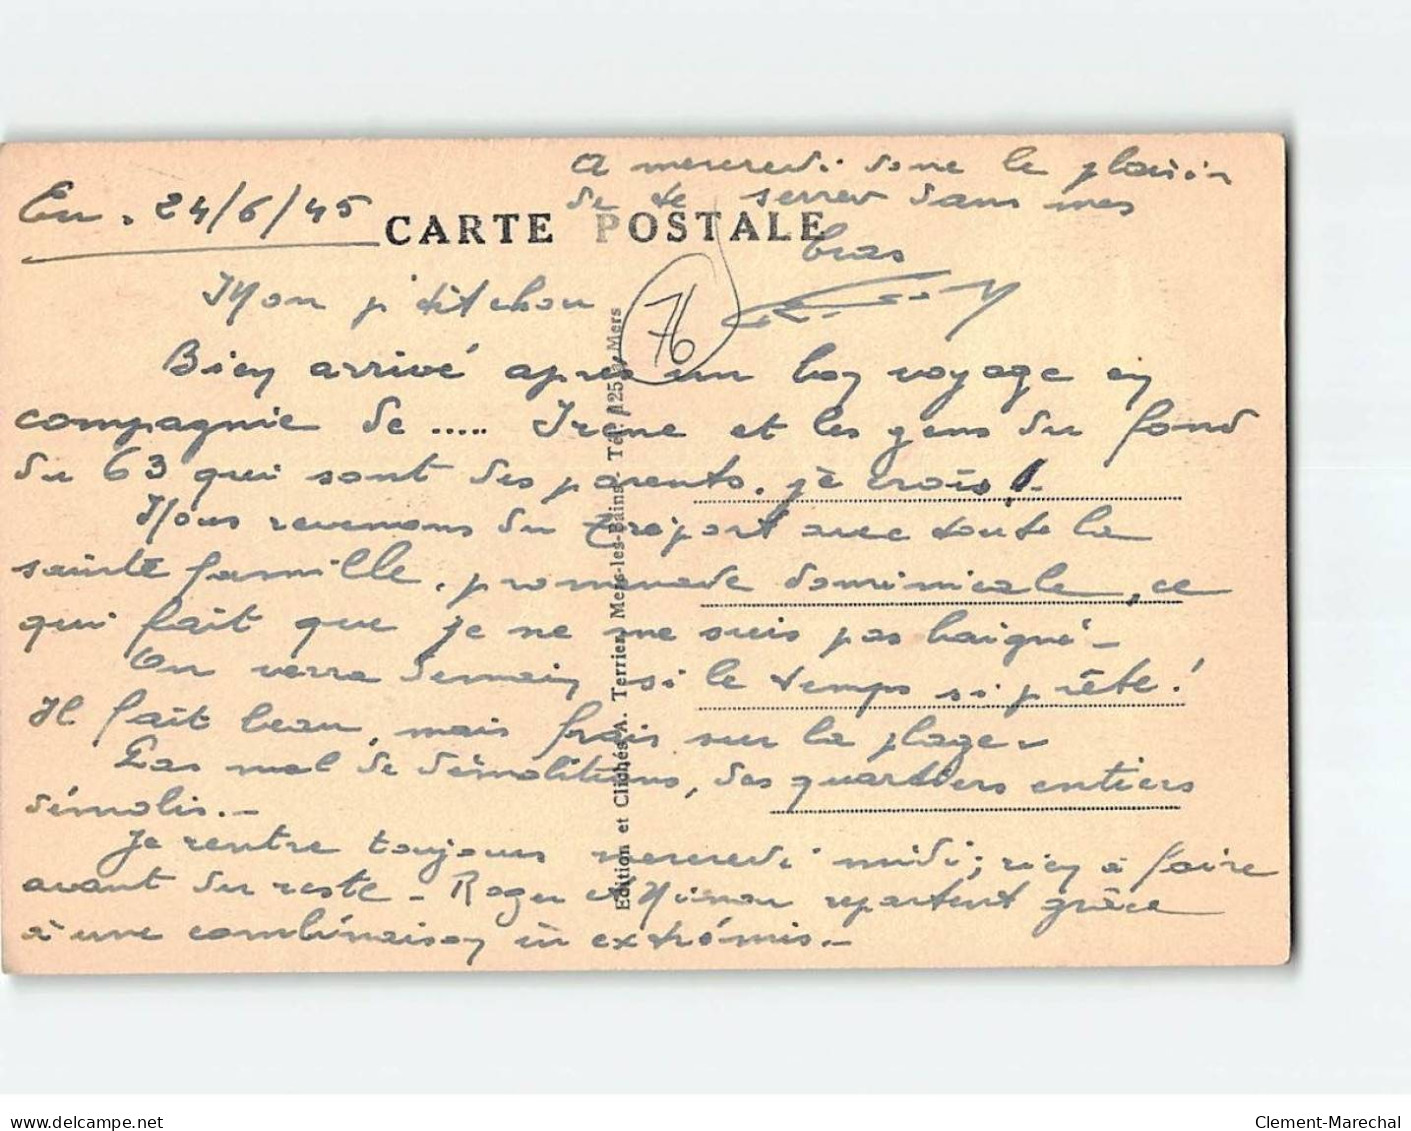 Eu. 24/6/45
CARTE POSTALE
Mon p'titchou
76
Bien arrivé après un bon voyage en
compagnie de ..... Irène et les gens du fond
du 63 qui sont des parents, je crois!-
Nous revenons du Tréport avec toute la
sainte famille, promenade dominicale, ce
qui fait que je ne me suis pas baigné-
On verra demain si le temps s'i prête!
Il fait beau, mais frais sur la plage-
Pas mal de démolitions, des quartiers entiers
démolis.-
Je rentre toujours mercredi midi; rien à faire
avant du reste - Roger et Ninon repartent grâce
à une combinaison in extrémis.-
A mercredi donc le plaisir
de te serrer dans mes
bras
Edition et Clichés A. Terrier, Mers-les-Bains - Tél. 125 Mers
delcampe.net
Clement-Marechal